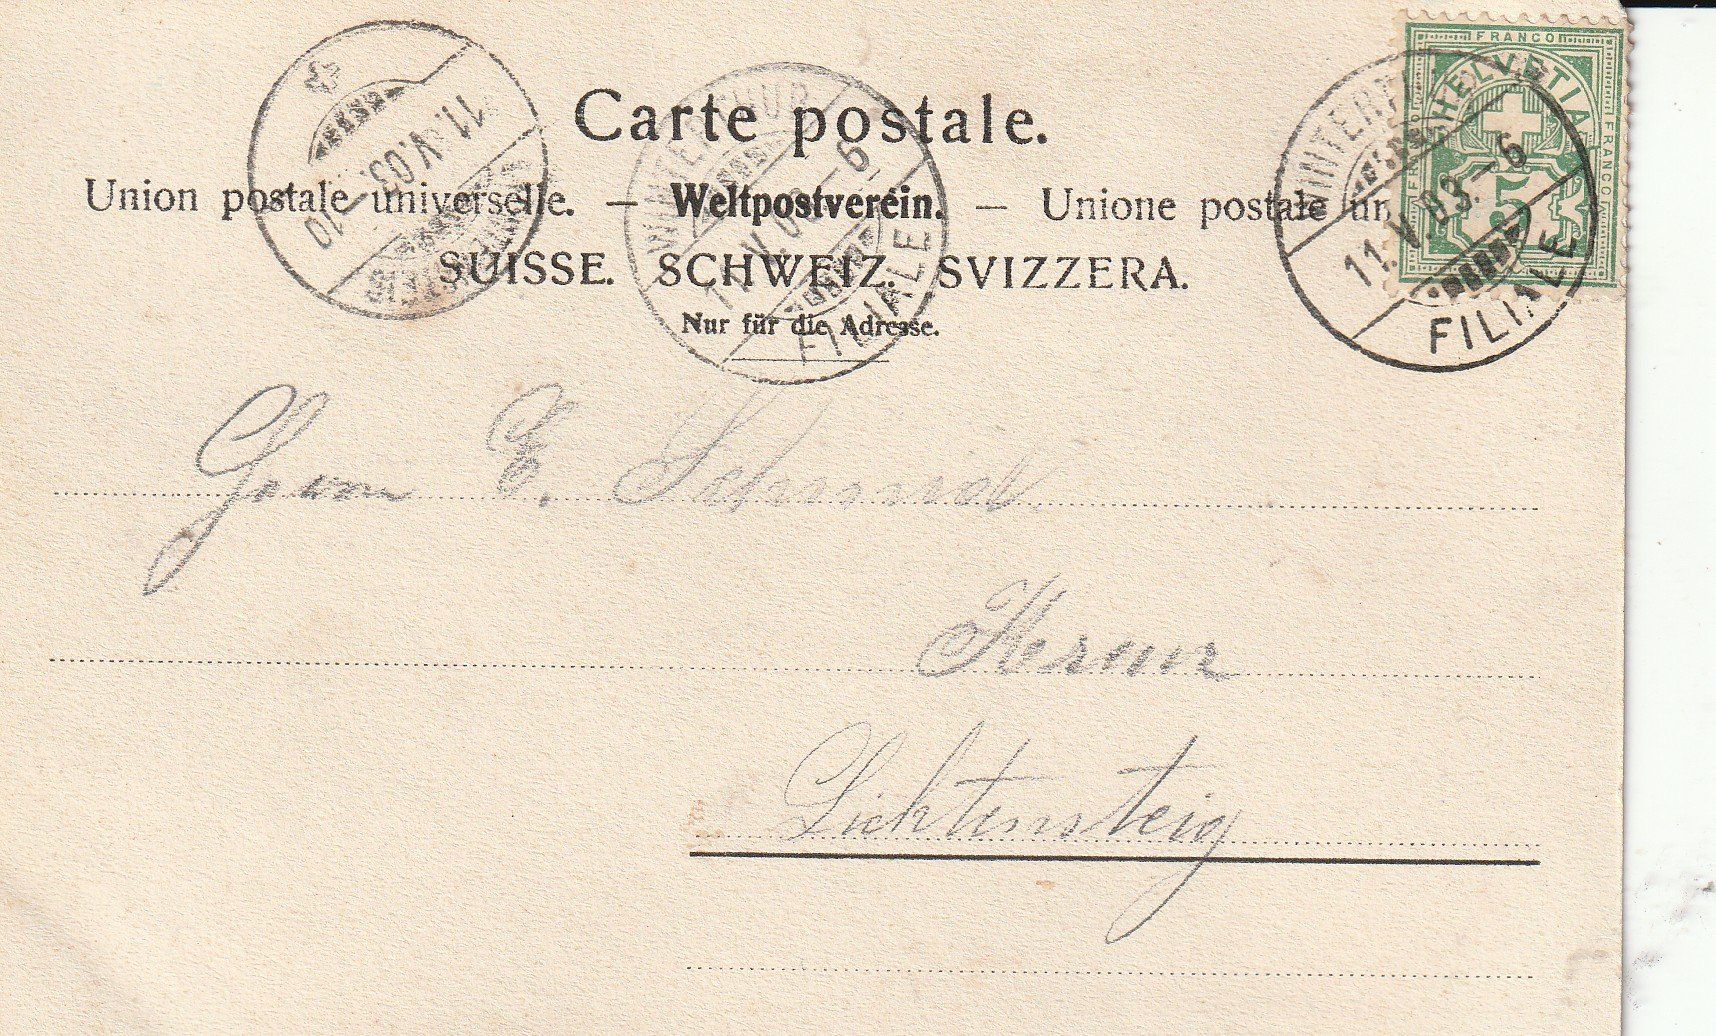 Carte postale.
Union postale universelle. — Weltpostverein. — Unione postale un
SUISSE. SCHWEIZ. SVIZZERA.
Nur für die Adresse.
FRANCO
HELVETIA
FRANCO
FRANCO
5
WINTERTHUR
11.V.03.-6
FILIALE
WINTERTHUR
11.V.03.-6
FILIALE
11.V.03.-10
LICHTENSTEIG
Herrn E. Schmid
Lichtensteig